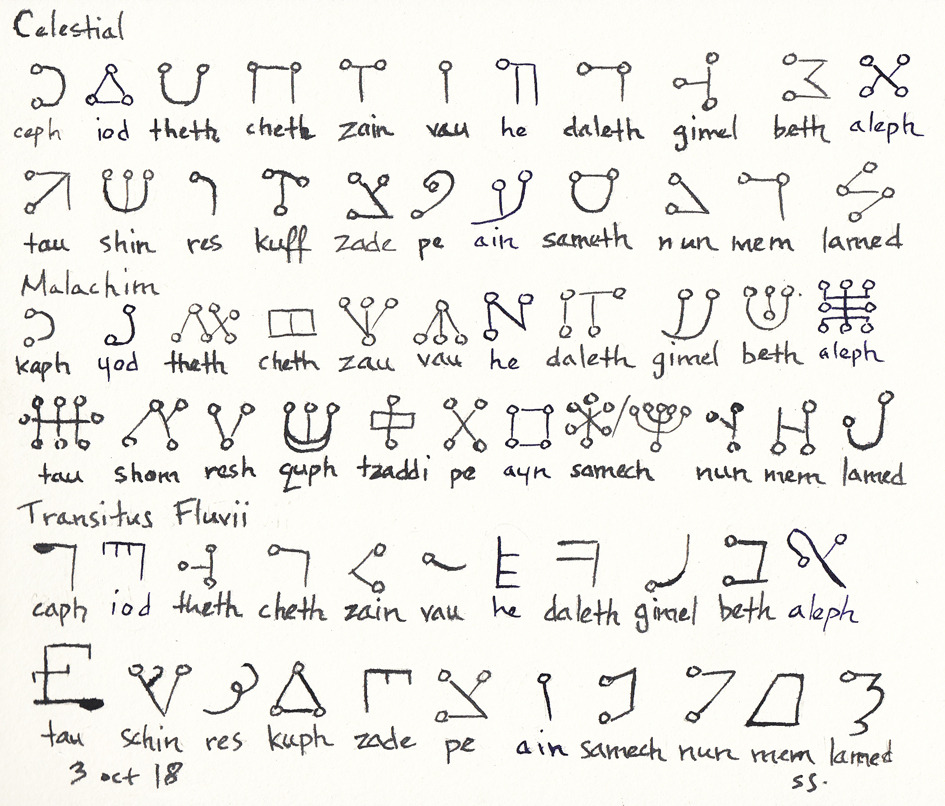 Celestial
ceph iod theth cheth zain vau he daleth gimel beth aleph
tau shin res kuff zade pe ain sameth nun mem lamed
Malachim
kaph yod theth cheth zau vau he daleth gimel beth aleph
tau shom resh quph tzaddi pe ayn samech nun mem lamed
Transitus Fluvii
caph iod theth cheth zain vau he daleth gimel beth aleph
tau schin res kuph zade pe ain samech nun mem lamed
3 oct 18 ss.